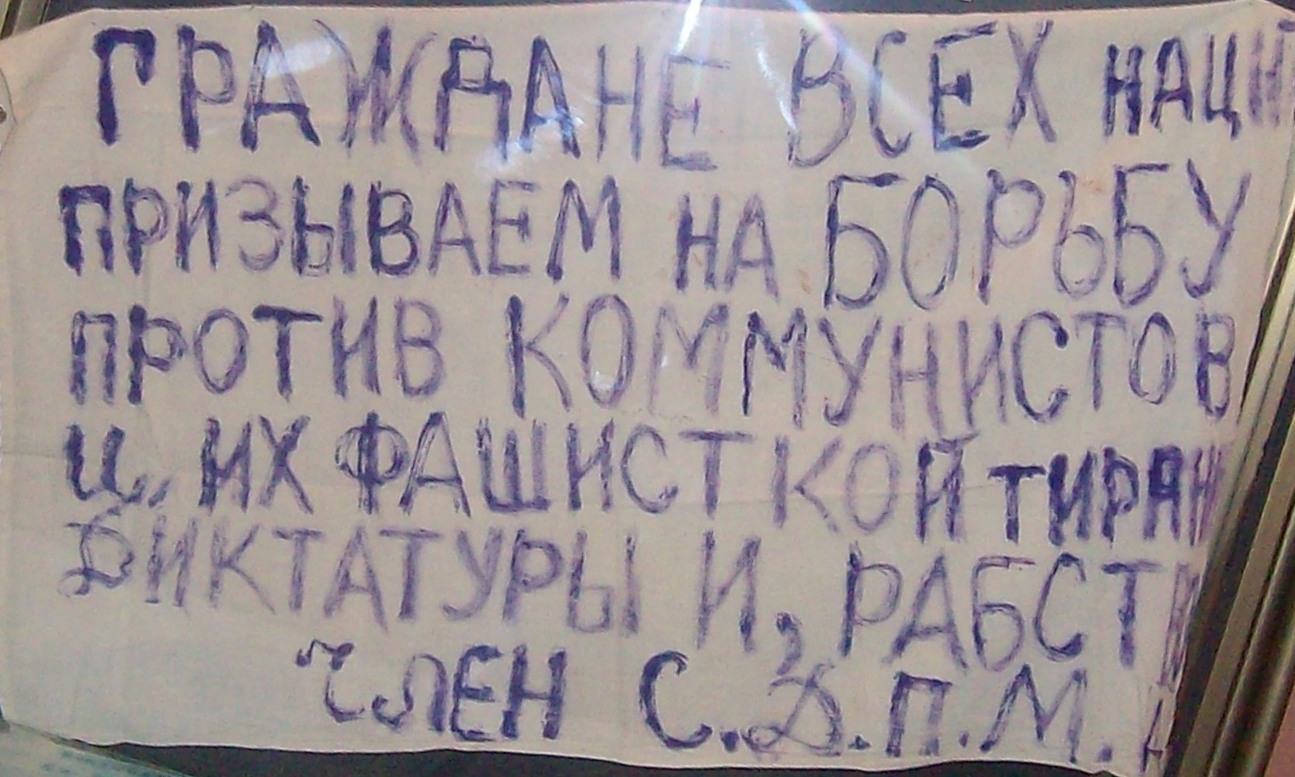 ГРАЖДАНЕ ВСЕХ НАЦИ
ПРИЗЫВАЕМ НА БОРЬБУ
ПРОТИВ КОММУНИСТОВ
И, ИХ ФАШИСТКОЙ ТИРАН
ДИКТАТУРЫ И, РАБСТВ
ЧЛЕН С.Д.П.М.